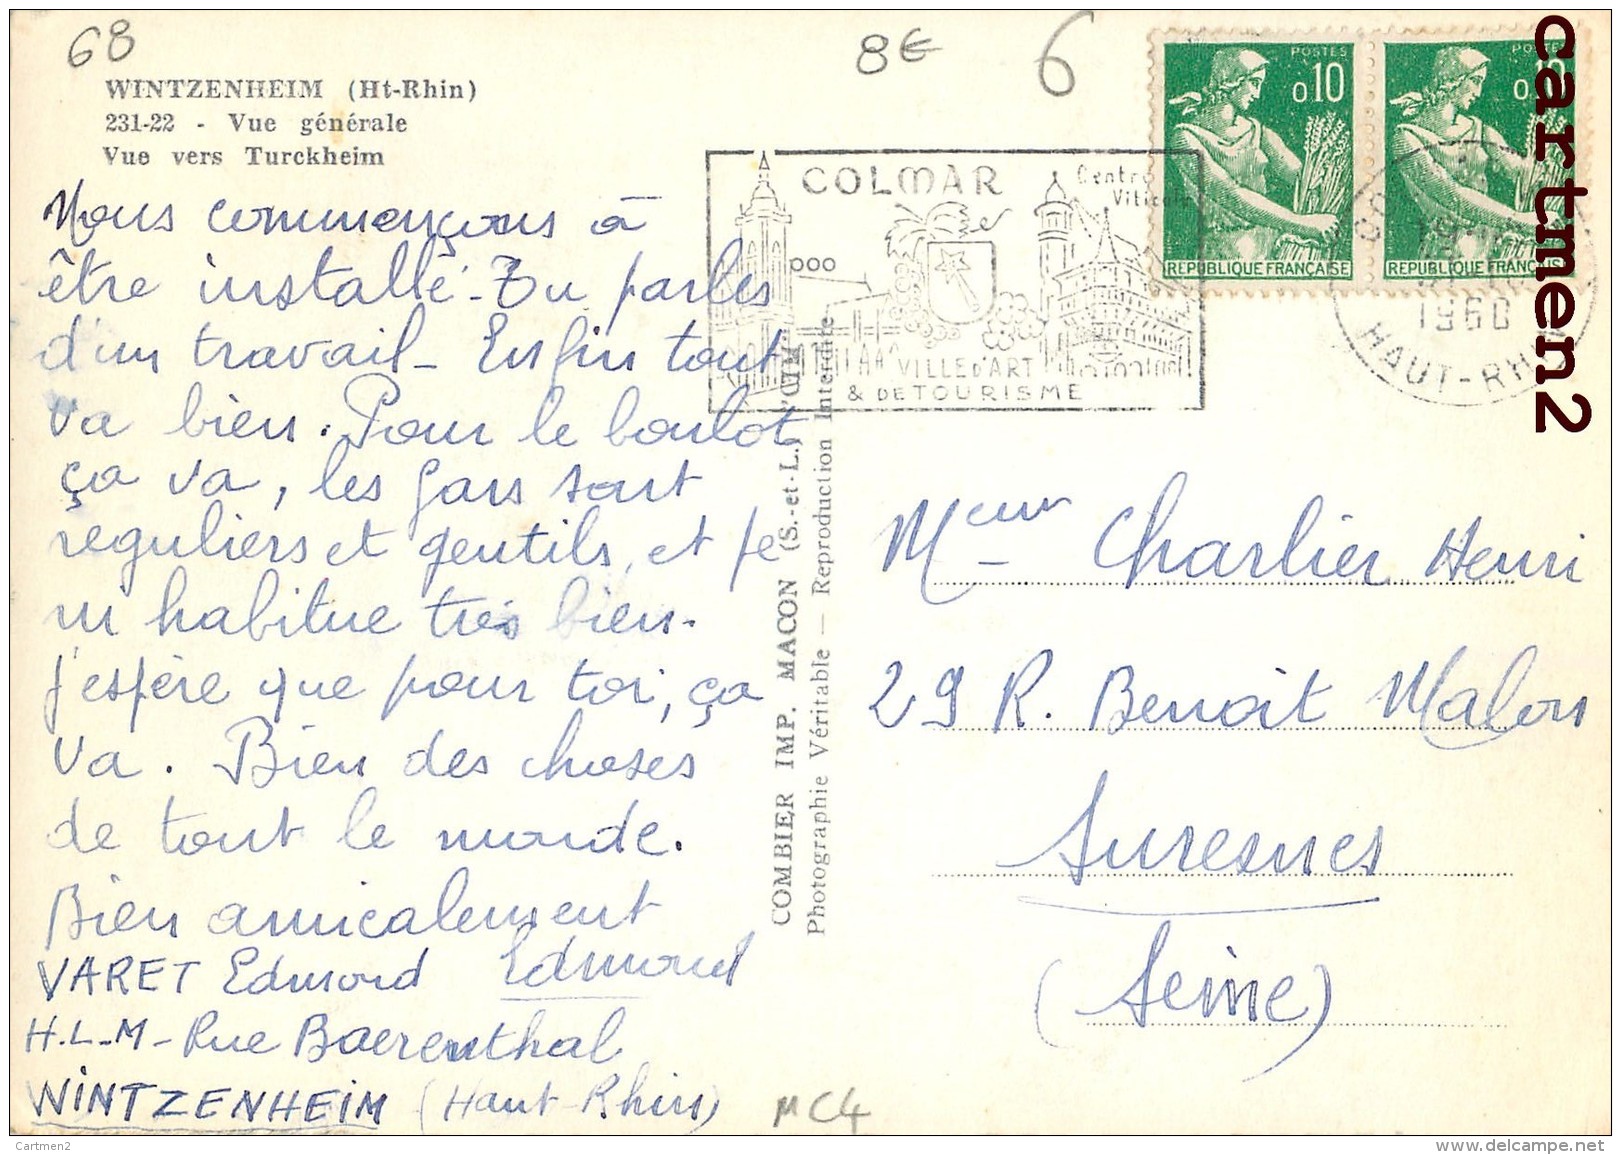 68
8€
6
WINTZENHEIM (Ht-Rhin)
231-22 - Vue générale
Vue vers Turckheim
Nous commençons à
être installé - Tu parles
d'un travail - Enfin tout
va bien. Pour le boulot
ça va, les gars sont
reguliers et gentils, et je
m habitue très bien.
j'espère que pour toi, ça
va. Bien des choses
de tout le monde.
Bien amicalement
VARET Edmond Edmond
H.L.M - Rue Baerenthal
WINTZENHEIM (Haut-Rhin)
COMBIER IMP. MACON (S.-et-L.) "CIM"
Photographie Véritable — Reproduction Interdite
COLMAR
Centre
Viticole
VILLE d'ART
& DE TOURISME
POSTES
0,10
REPUBLIQUE FRANÇAISE
POSTES
0,10
REPUBLIQUE FRANÇAISE
1960
HAUT-RHIN
Meur Charlier Henri
29 R. Benoit Malon
Suresnes
(Seine)
MC4
cartmen2
Cartmen2
www.delcampe.net